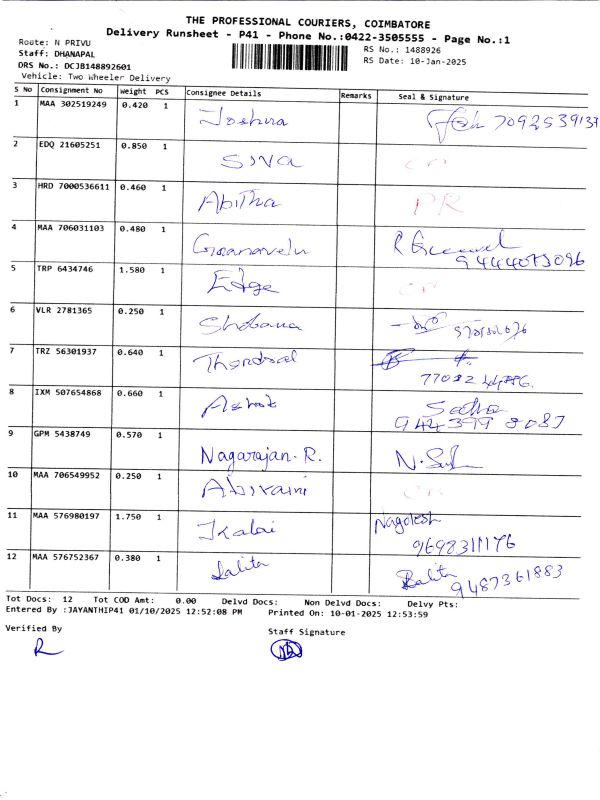 THE PROFESSIONAL COURIERS, COIMBATORE
Delivery Runsheet - P41 - Phone No.:0422-3505555 - Page No.:1
Route: N PRIVU
RS No.: 1488926
Staff: DHANAPAL
RS Date: 10-Jan-2025
DRS No.: DCJB148892601
Vehicle: Two Wheeler Delivery
S No Consignment No Weight PCS Consignee Details Remarks Seal & Signature
1 MAA 302519249 0.420 1 Joshna 7092539137
2 EDQ 21605251 0.850 1 SIVA
3 HRD 7000536611 0.460 1 Abitha PR
4 MAA 706031103 0.480 1 Gnanavelu
9444073096
5 TRP 6434746 1.580 1 Edge
6 VLR 2781365 0.250 1 Shobana
7 TRZ 56301937 0.640 1
8 IXM 507654868 0.660 1 Ashok
94439 98087
9 GPM 5438749 0.570 1 Nagarajan. R.
10 MAA 706549952 0.250 1 Abirami
11 MAA 576980197 1.750 1 Kalai Nagolesh
9698311176
12 MAA 576752367 0.380 1 Lalita Lalita
9487361883
Tot Docs: 12 Tot COD Amt: 0.00 Delvd Docs: Non Delvd Docs: Delvy Pts:
Entered By :JAYANTHIP41 01/10/2025 12:52:08 PM Printed On: 10-01-2025 12:53:59
Verified By
Staff Signature
R